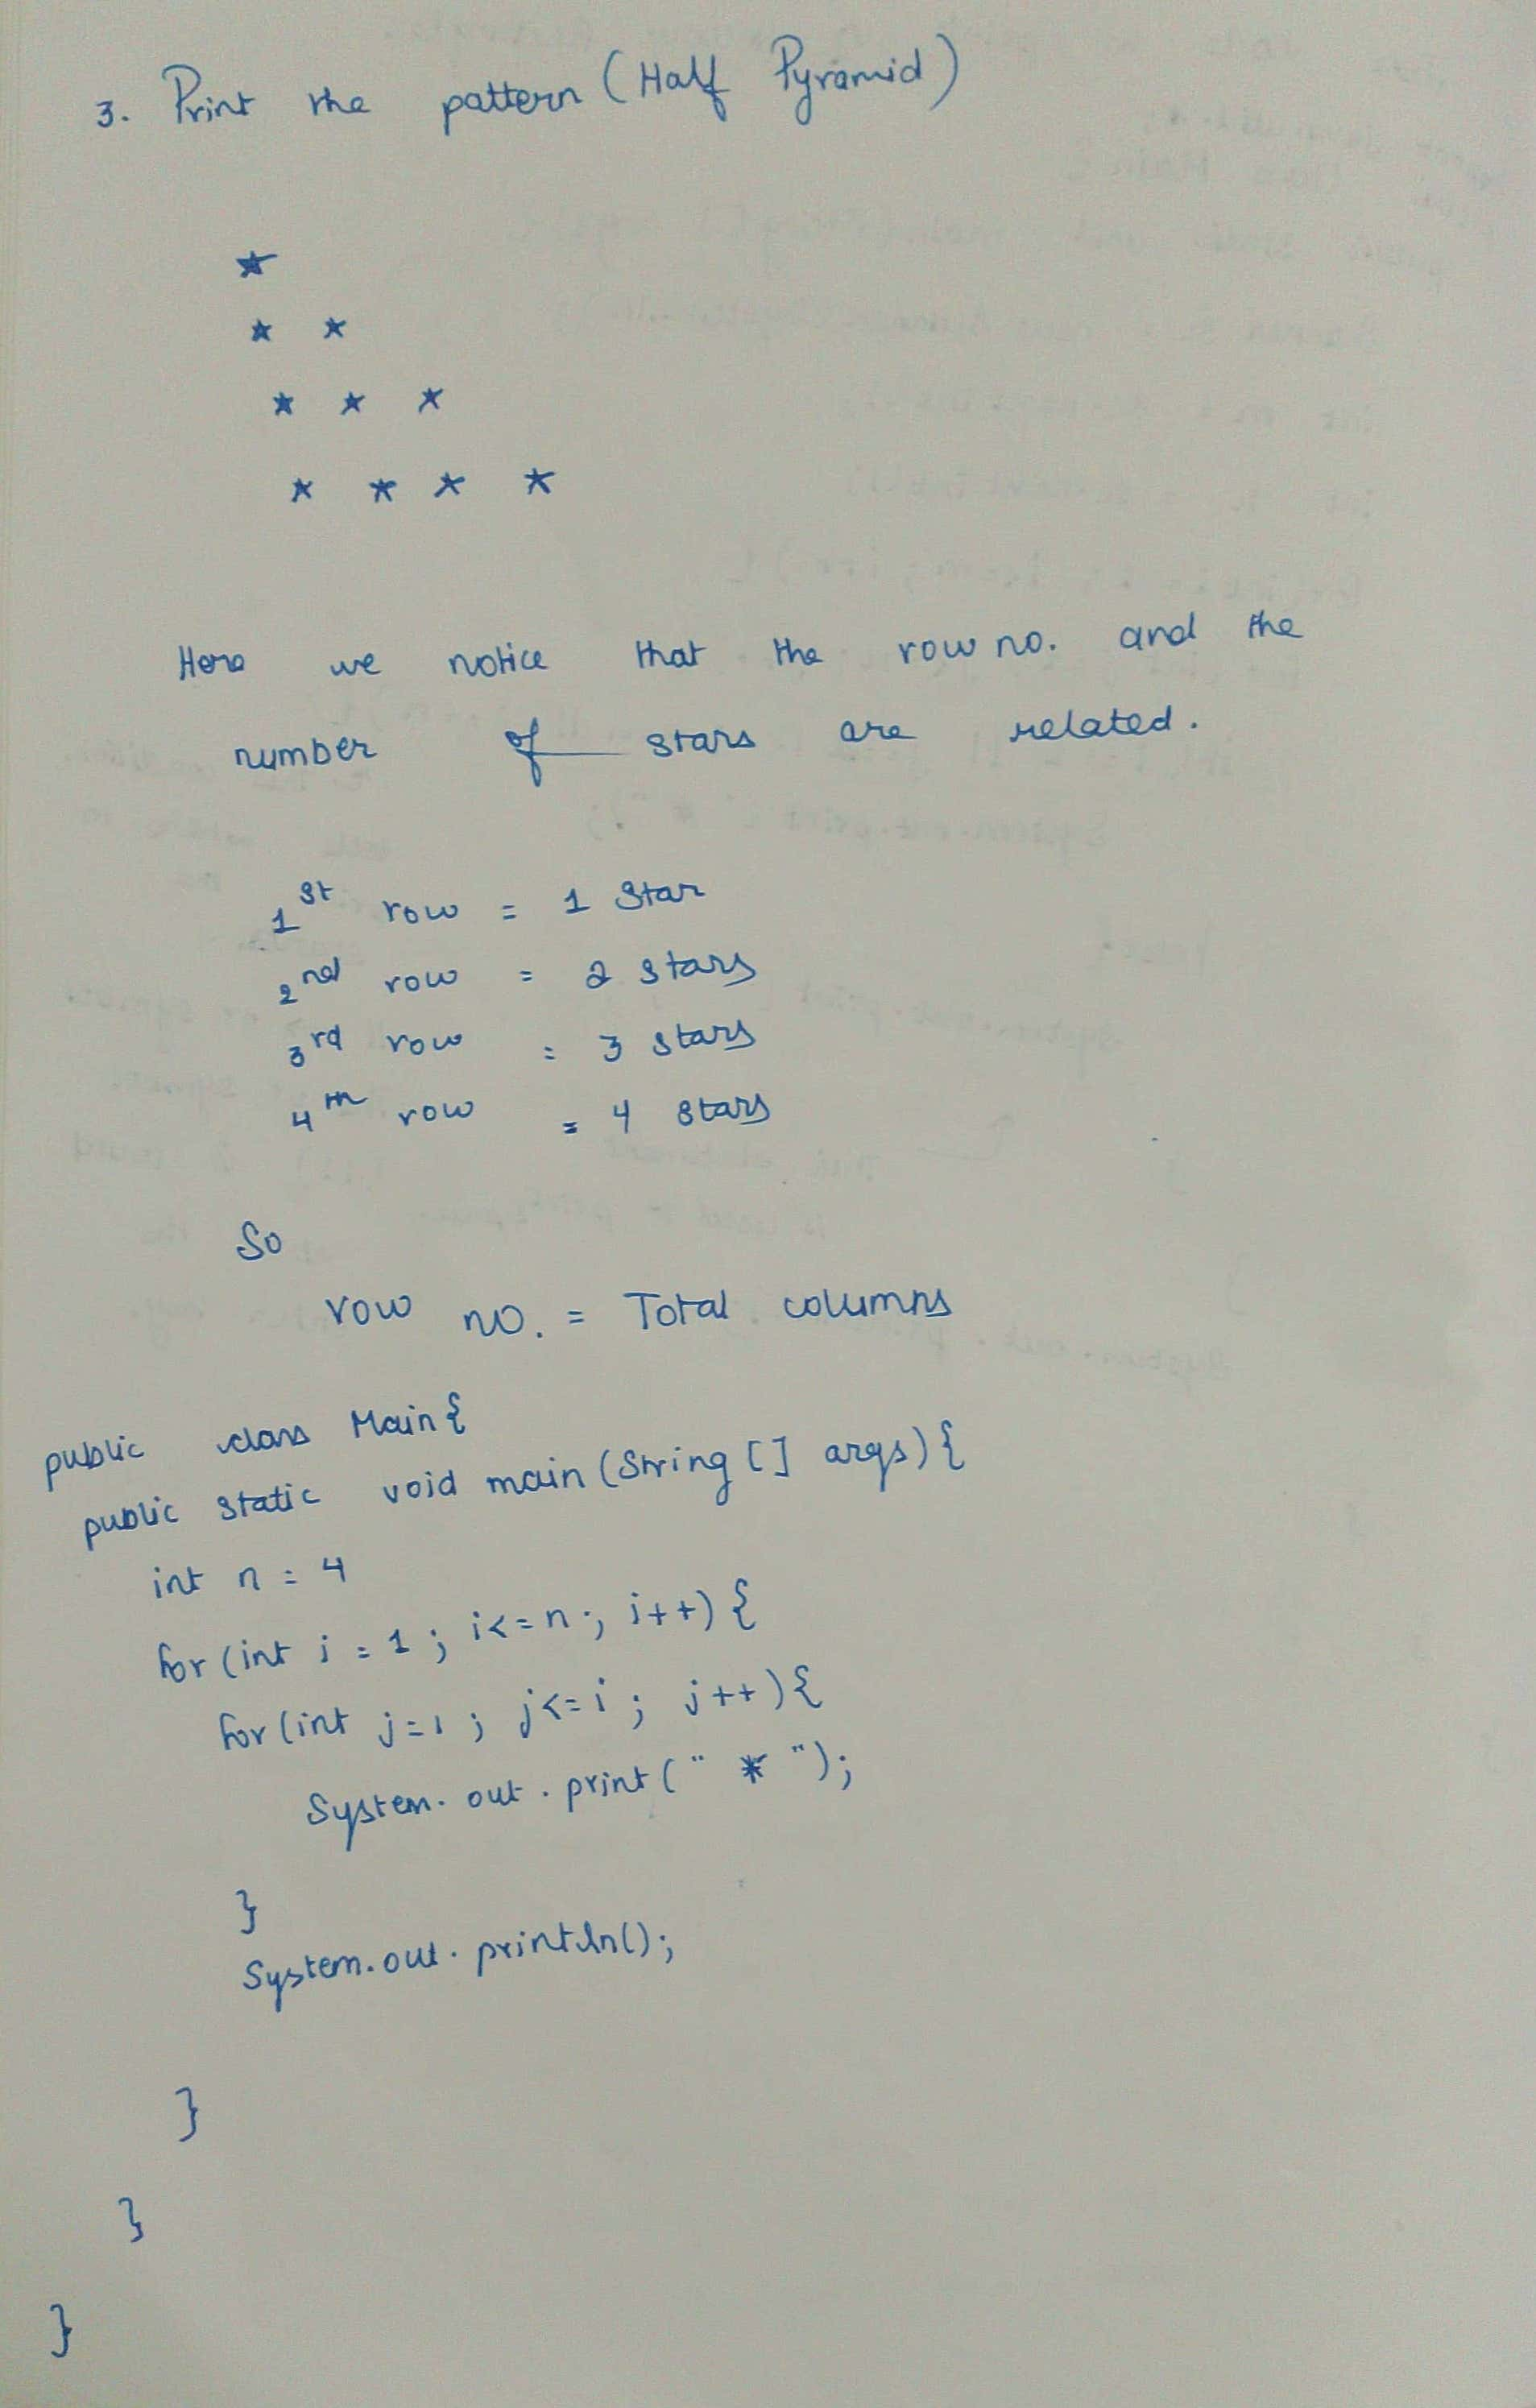 3. Print the pattern (Half Pyramid)
*
* *
* * *
* * * *
Here we notice that the row no. and the
number of stars are related.
1st row = 1 Star
2nd row = 2 stars
3rd row = 3 stars
4th row = 4 stars
So
row no. = Total columns
public class Main{
public static void main (String [] args) {
int n = 4
for (int i = 1 ; i<=n ; i++) {
for (int j=1 ; j<=i ; j++) {
System.out.print (" * ");
}
System.out.println();
}
}
}